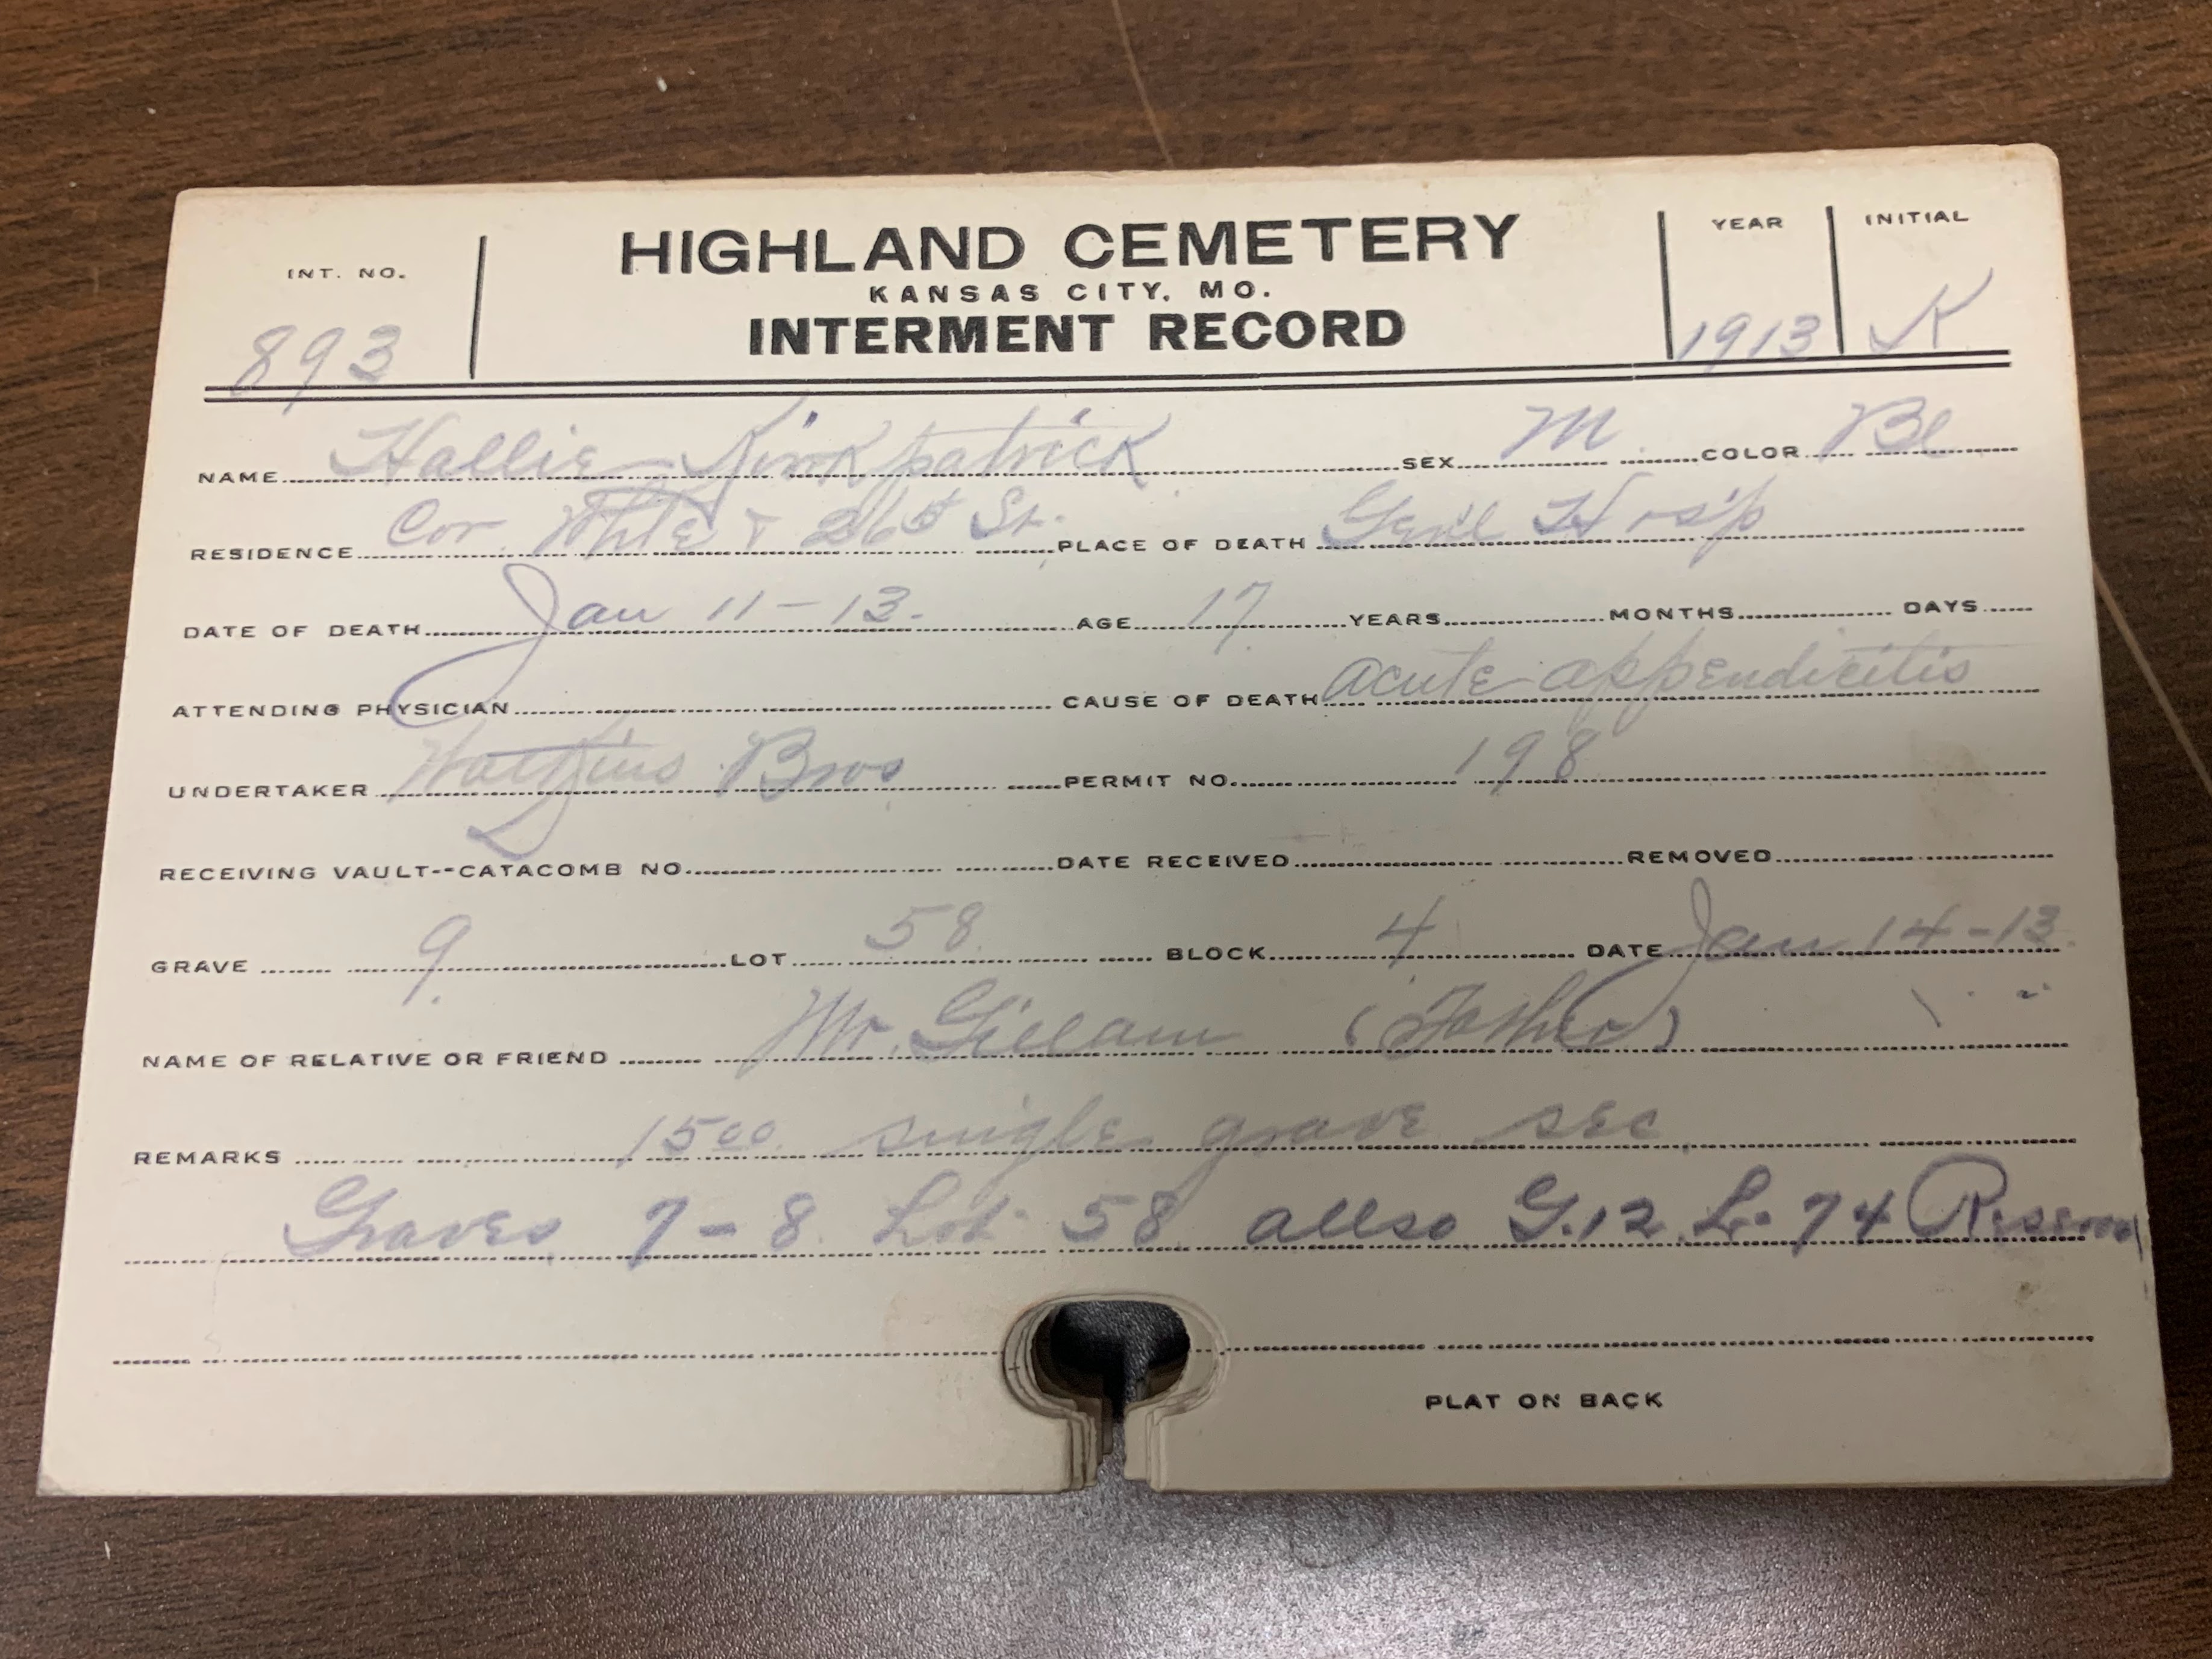 INT. NO. HIGHLAND CEMETERY YEAR INITIAL
KANSAS CITY, MO.
893 INTERMENT RECORD 1913 K
NAME Hallie Kirkpatrick SEX M COLOR Bl
RESIDENCE Cor. & 26th St. PLACE OF DEATH Gen'l Hosp
DATE OF DEATH Jan 11-13. AGE 17 YEARS MONTHS DAYS
ATTENDING PHYSICIAN CAUSE OF DEATH acute appendicitis
UNDERTAKER Watkins Bros PERMIT NO. 198
RECEIVING VAULT--CATACOMB NO. DATE RECEIVED REMOVED
GRAVE 9 LOT 58 BLOCK 4 DATE Jan 14-13
NAME OF RELATIVE OR FRIEND Mr. Gillam (Father)
REMARKS 1500 single grave sec
Graves 7-8 Lot 58 allso G.12 L. 74
PLAT ON BACK